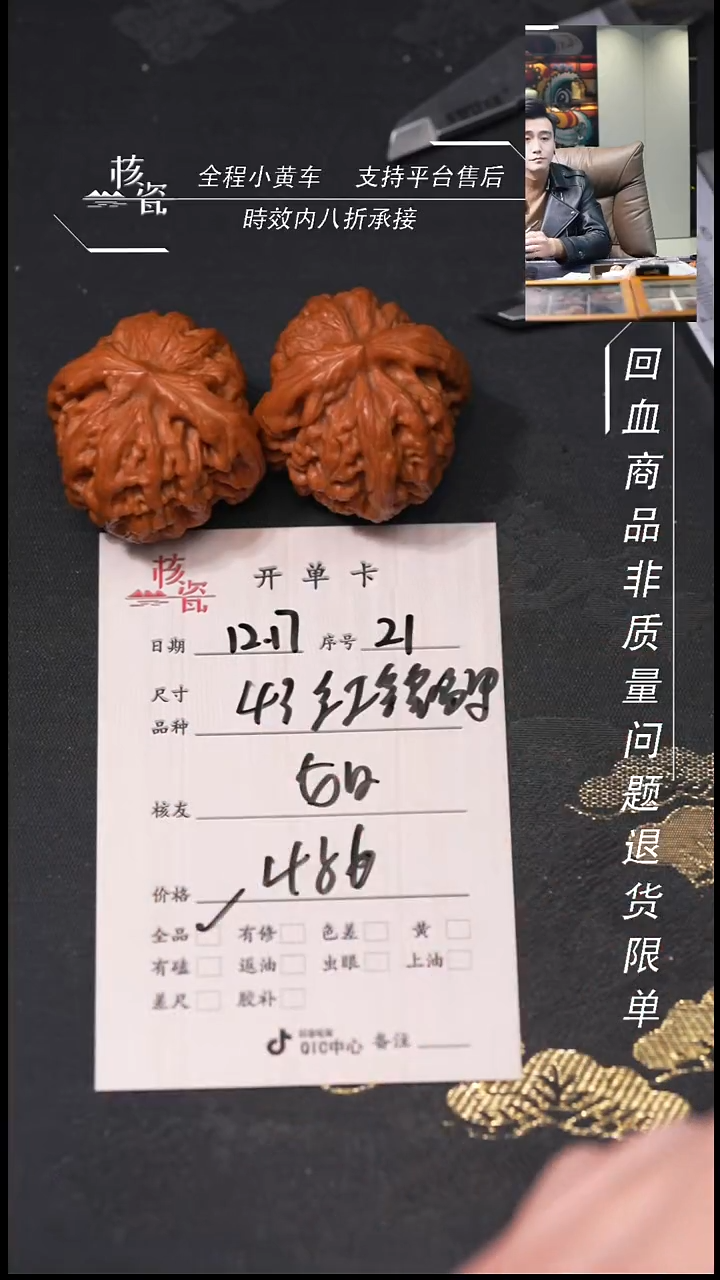 核瓷
全程小黄车 支持平台售后
時效内八折承接
回血商品非质量问题退货限单
核瓷
开单卡
日期 12.17 序号 21
尺寸 43 红
品种
核友
价格 486
全品 有修 色差 黄
有磕 返油 虫眼 上油
差尺 胶补
QIC中心 备注